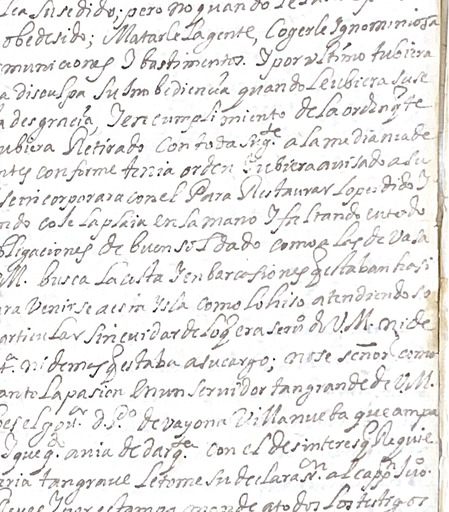 lea susedido; pero no quando le
obedesido; Matarle la gente, Cogerle Ignominiosa
municiones I bastimentos. I por vltimo tubiera
a disculpa su Inobediencia quando le ubiera suse
a desgracia, I en cumplimiento de la orden q te
ubiera Retirado Con toda su g.te a la mediania de
ntes conforme tenia orden I ubiera auisado a su
se incorporara con el Para Restaurar lo perdido I
ndo cose la plaia en la mano I faltando en todo
obligaciones de buen soldado como a las de Vasa
VM. busca la costa I enbarcasiones q estaban
ara Venirse a esta Isla como lo hiso atendiendo so
articular sin cuidar de lo q era seru.o de V.M. ni de
ni demas q estaba a su cargo; no se señor como
anto la pasion en un seruidor tan grande de V.M.
es el d. P.o de vayona Villanueba que ampa
I que q. auia de dar q.ta con el desinteres q Requie
eria tan graue le tome su declaras.on al cap.n Ju.o
todos los testigos